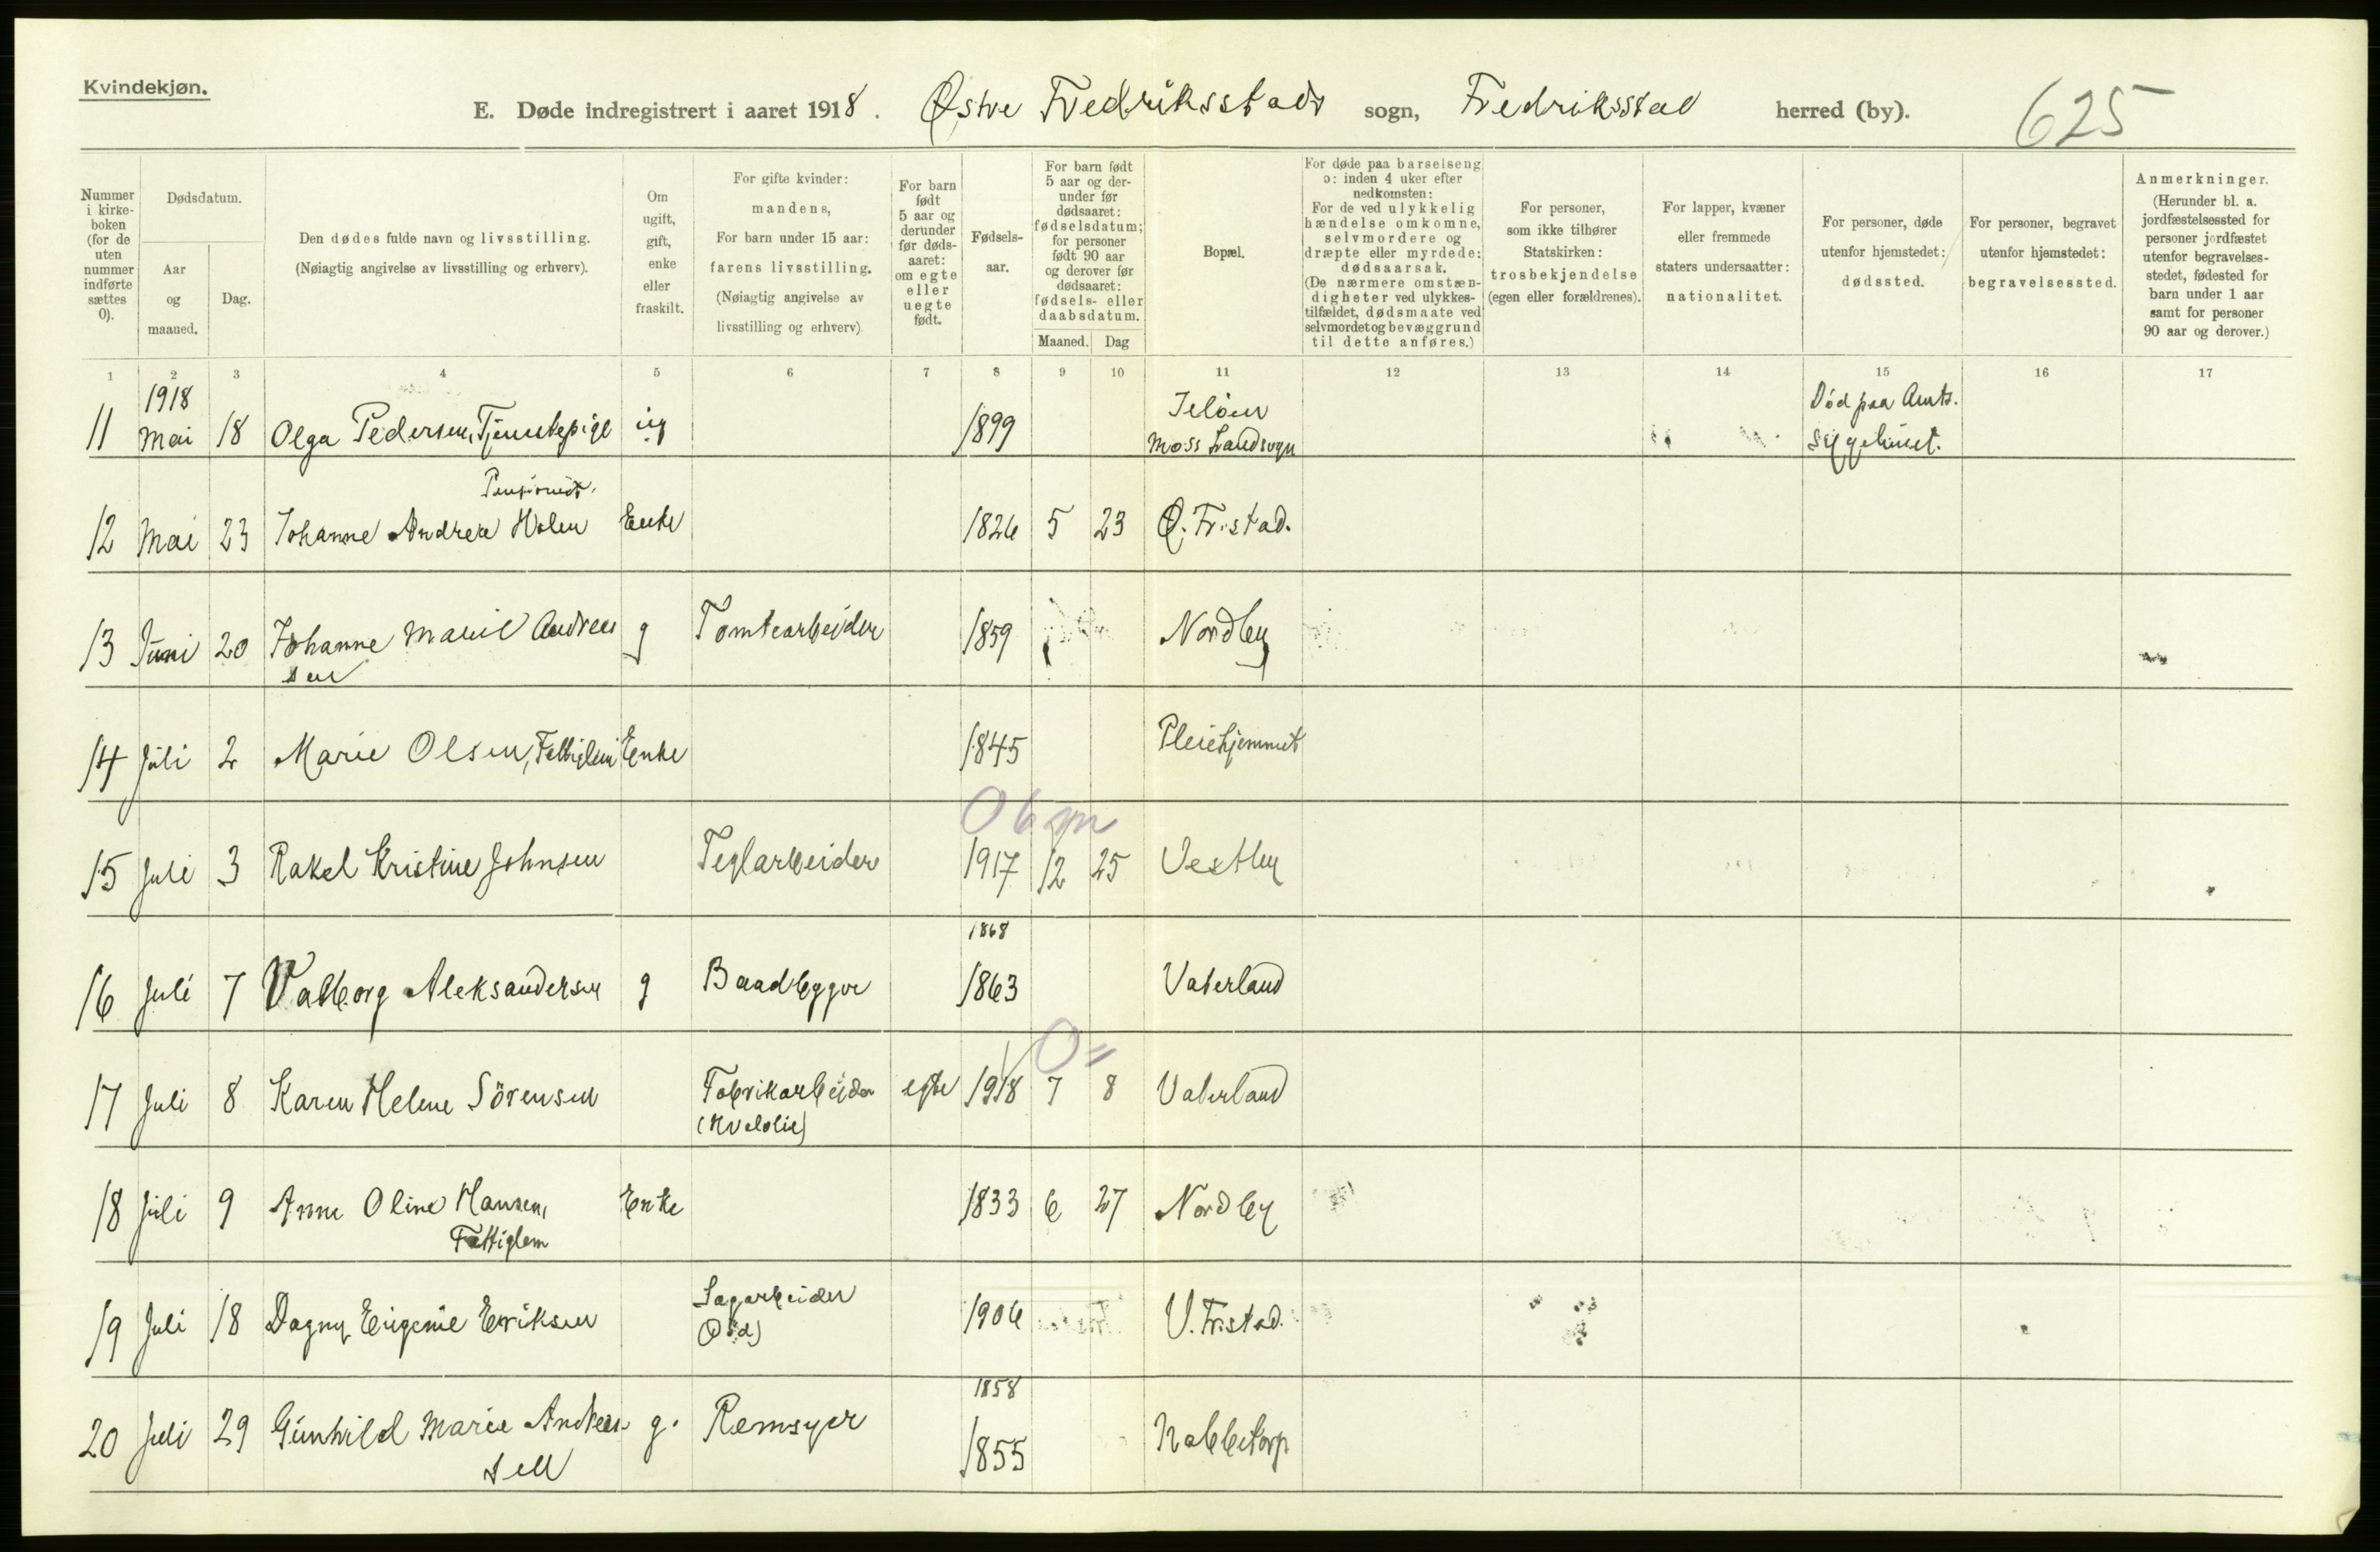 Kvindekjøn.
E. Døde indregistrert i aaret 1918. Østre Fredriksstads sogn, Fredriksstad herred (by). 625
Nummer i kirke-boken (for de uten nummer indførte sættes 0).
Dødsdatum.
Aar og maaned.
Dag.
Den dødes fulde navn og livsstilling.
(Nøiagtig angivelse av livsstilling og erhverv).
Om ugift, gift, enke eller fraskilt.
For gifte kvinder: mandens,
For barn under 15 aar: farens livsstilling.
(Nøiagtig angivelse av livsstilling og erhverv)
For barn født 5 aar og derunder før døds-aaret: om egte eller uegte født.
Fødsels-aar.
For barn født 5 aar og der-under før dødsaaret: fødselsdatum; for personer født 90 aar og derover før dødsaaret: fødsels- eller daabsdatum.
Maaned. Dag
Bopæl.
For døde paa barselseng ɔ: inden 4 uker efter nedkomsten:
For de ved ulykkelig hændelse omkomne, selvmordere og dræpte eller myrdede: dødsaarsak.
(De nærmere omstæn-digheter ved ulykkes-tilfældet, dødsmaate ved selvmordet og bevæggrund til dette anføres.)
For personer, som ikke tilhører Statskirken: trosbekjendelse (egen eller forældrenes).
For lapper, kvæner eller fremmede staters undersaatter: nationalitet.
For personer, døde utenfor hjemstedet: dødssted.
For personer, begravet utenfor hjemstedet: begravelsessted.
Anmerkninger.
(Herunder bl. a. jordfæstelsessted for personer jordfæstet utenfor begravelses-stedet, fødested for barn under 1 aar samt for personer 90 aar og derover.)
1 2 3 4 5 6 7 8 9 10 11 12 13 14 15 16 17
1918
11 Mai 18 Olga Pedersen, Tjenestepige ug 1899 Jeløen Moss Landsogn Död paa Amts. sygehuset.
12 Mai 23 Johanne Andrea Holm Pensionist. Enke 1826 5 23 Ø. Fr.stad.
13 Juni 20 Johanne Marie Andreassen g Tomtearbeider 1859 Nordby
14 Juli 2 Marie Olsen, Fattiglem Enke 1845 Pleiehjemmet
0 6 m
15 Juli 3 Rakel Kristine Johnsen Teglarbeider 1917 12 25 Vestby
1868
16 Juli 7 Valborg Aleksandersen g Baadbygger 1863 Vaterland
0 =
17 Juli 8 Karen Helene Sörensen Fabrikarbeider (Hvalolie) egte 1918 7 8 Vaterland
18 Juli 9 Anne Oline Hansen, Fattiglem Enke 1833 6 27 Nordby
19 Juli 18 Dagny Eugenie Eriksen Sagarbeider (Död) 1906 V. Fr.stad.
1858
20 Juli 29 Gunhild Marie Andreassen g. Remsyer 1855 Nabbetorp